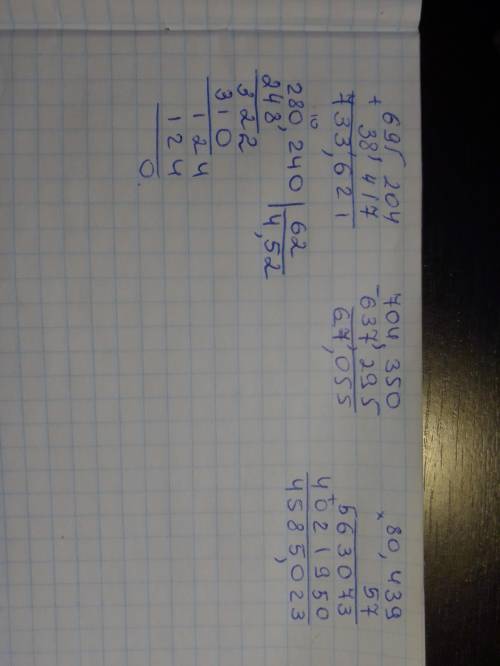 695 204
+
38,417
733,621
704 350
-
637,295
67,055
80,439
×
57
563073
+
4021950
4585,023
10
280,240 | 62
248, | 4,52
322
310
124
124
0